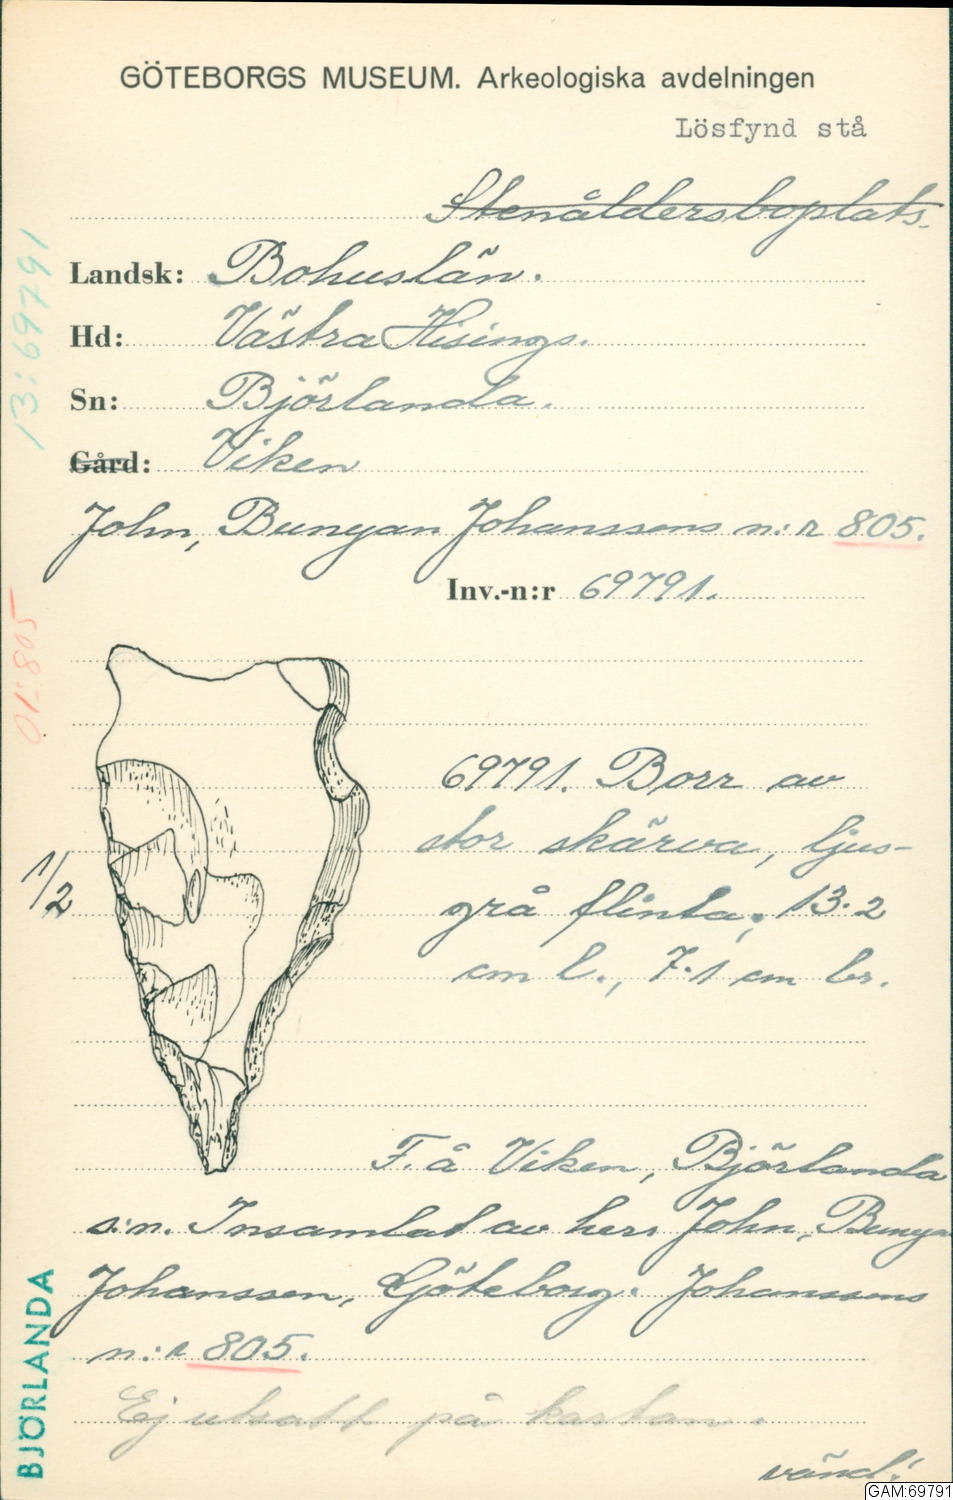 GÖTEBORGS MUSEUM. Arkeologiska avdelningen
Lösfynd stå
Stenåldersboplats.
Landsk: Bohuslän.
Hd: Västra Hisings.
Sn: Björlanda.
Gård: Viken
John, Bunyan Johanssons n:r 805.
Inv.-n:r 69791.
13:69791
01:805
1/2
69791. Borr av
stor skärva, ljus-
grå flinta; 13.2
cm l., 7.1 cm br.
F. å Viken, Björlanda
s:n. Insamlat av herr John, Bunyan
Johansson, Göteborg. Johanssons
n:r 805.
Ej utsatt på kartan.
vänd!
BJÖRLANDA
GAM:69791